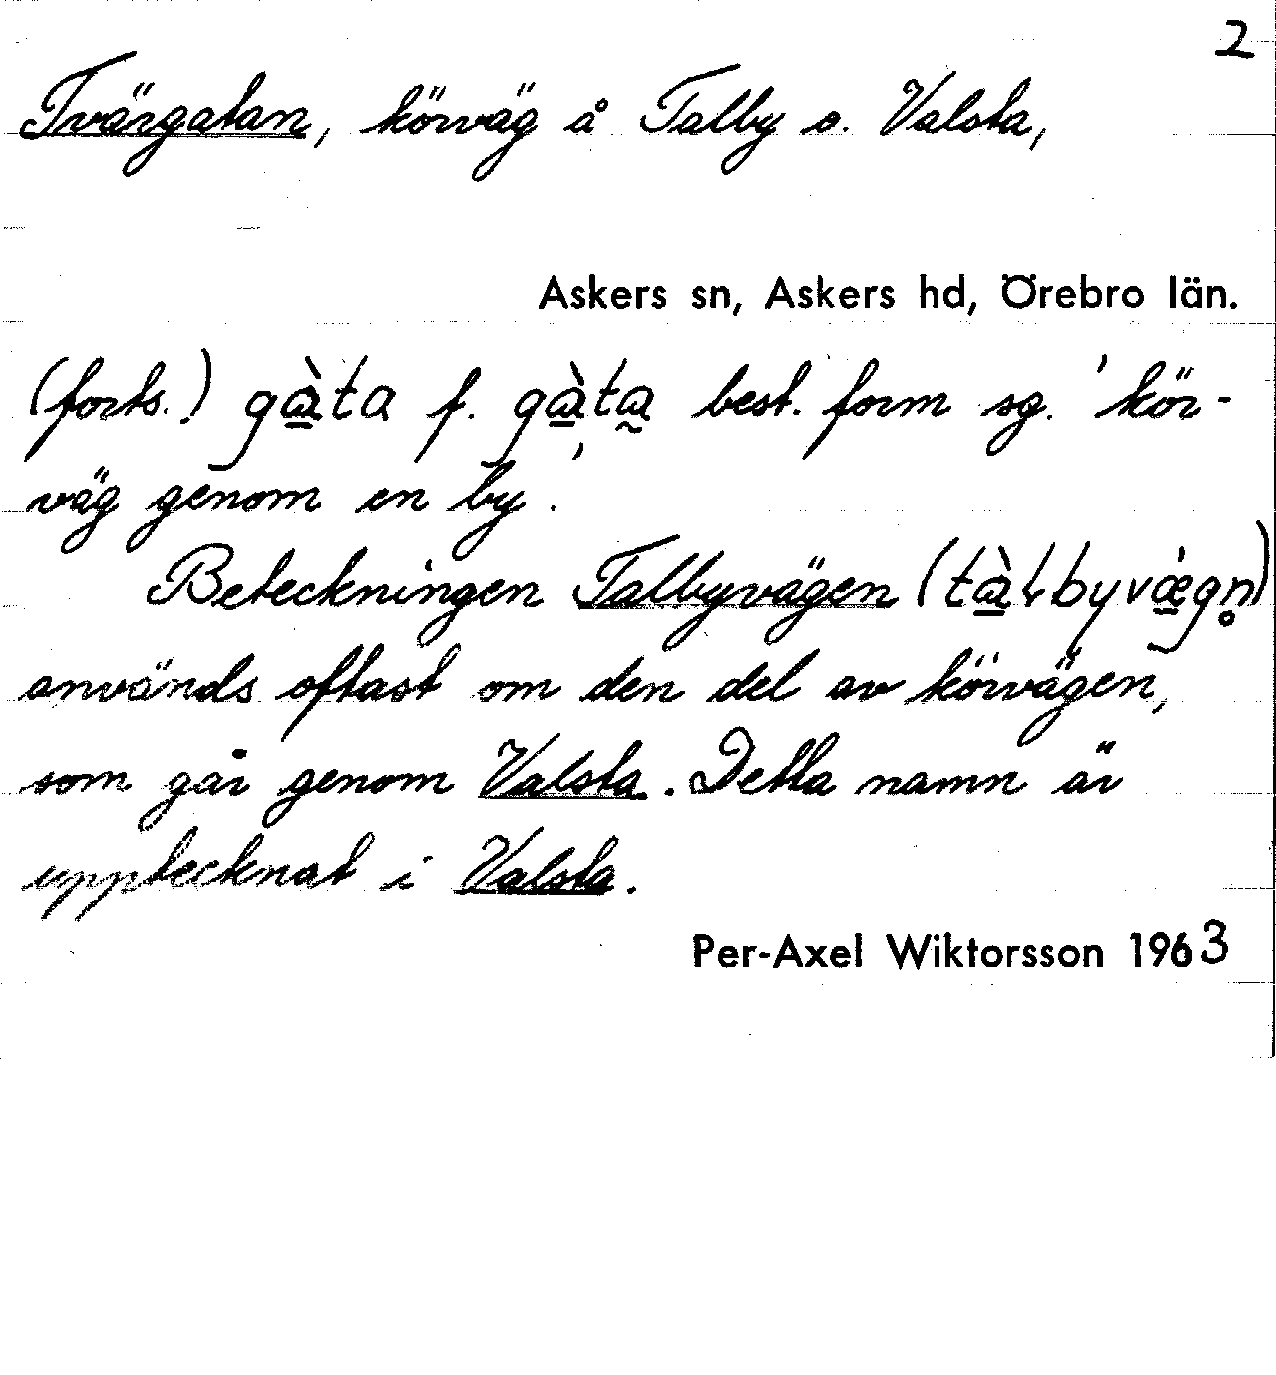 2
Tvärgatan, körväg å Talby o. Valsta,
Askers sn, Askers hd, Örebro län.
(forts.) gà̱ta f. gà̱ta̰ best. form sg. 'kör-
väg genom en by'.
Beteckningen Talbyvägen (tà̱ɫbyvæ̱̀gn̥)
används oftast om den del av körvägen,
som går genom Valsta. Detta namn är
upptecknat i Valsta.
Per-Axel Wiktorsson 1963